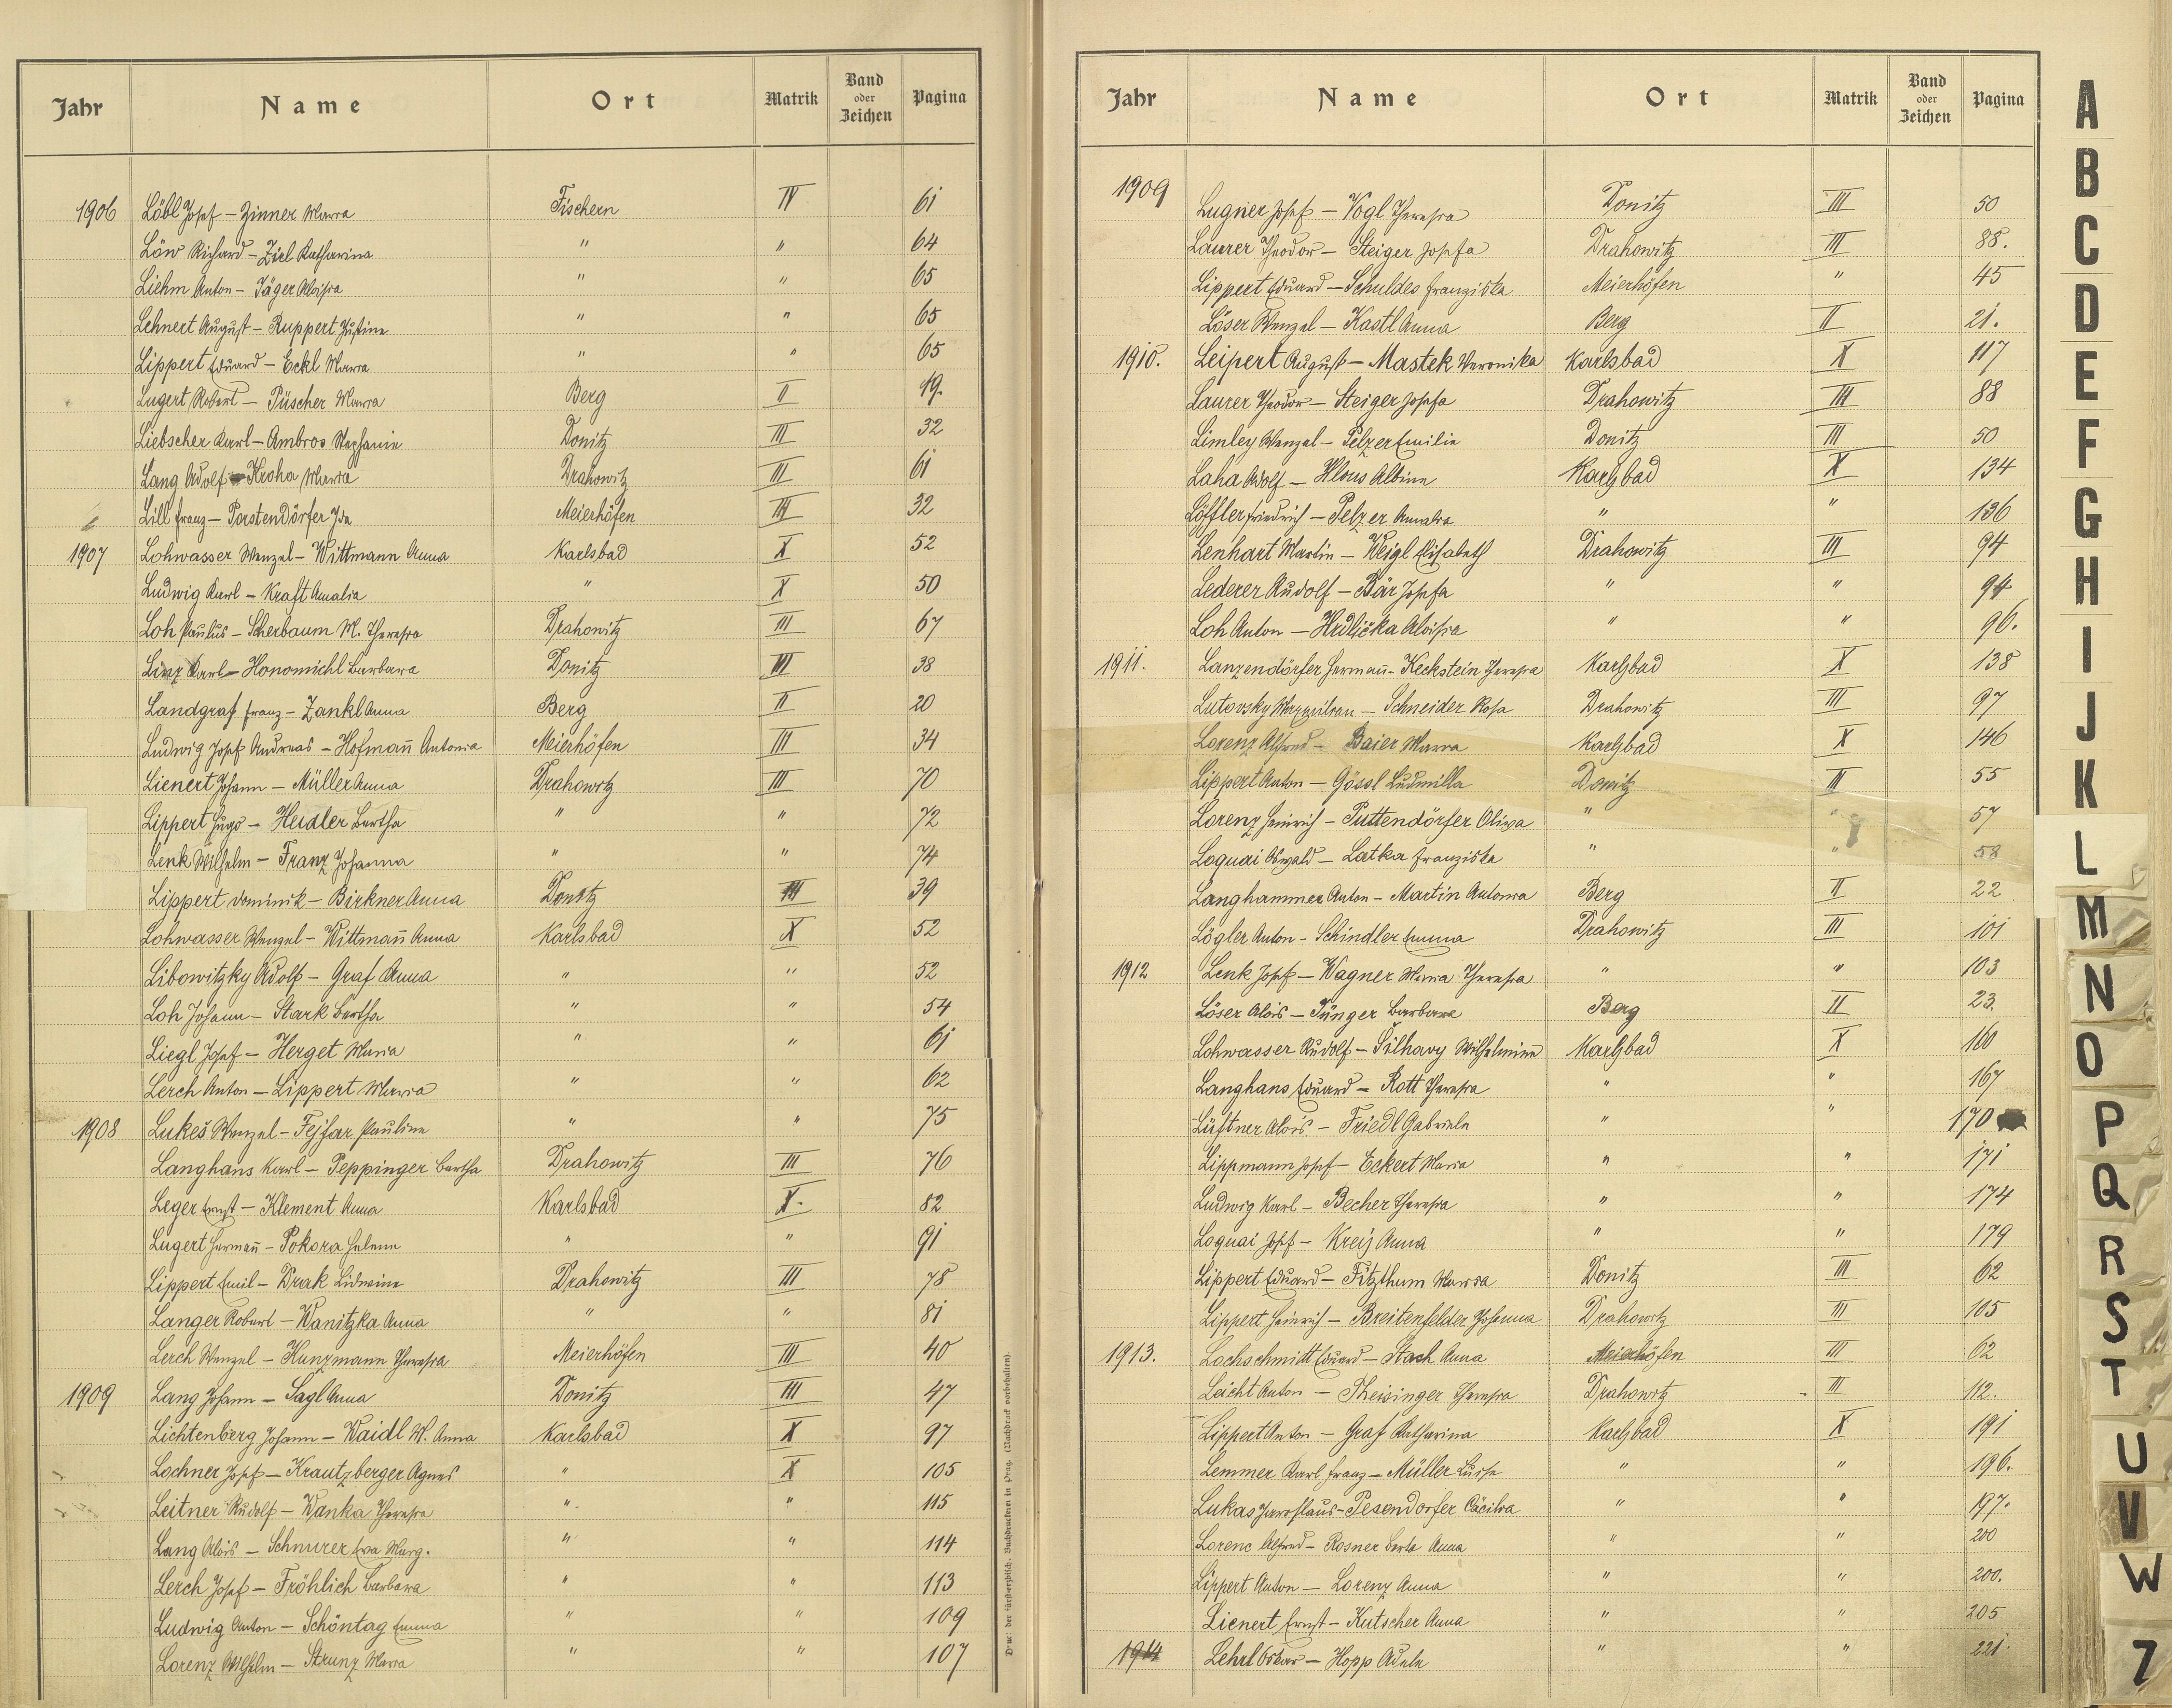 Jahr Name Ort Matrik Band oder Zeichen Pagina
1906 Löbl Josef – Zinner Maria Fischern IV 61
Löw Richard – Zirl Katharina " " 64
Liehm Anton – Jäger Aloisia " " 65
Lehnert August – Ruppert Justine " " 65
Lippert Eduard – Eckl Maria " " 65
Lugert Robert – Püscher Maria Berg II 19.
Liebscher Karl – Ambros Stephanie Donitz III 32
Lang Adolf – Kroha Maria Drahowitz III 61
Lill Franz – Porstendörfer Ida Meierhöfen III 32
1907 Lohwasser Wenzel – Wittmann Anna Karlsbad X 52
Ludwig Karl – Kraft Amalia " X 50
Loh Paulus – Scherbaum M. Theresia Drahowitz III 67
Linz Karl – Honomichl Barbara Donitz III 38
Landgraf Franz – Zankl Anna Berg II 20
Ludwig Josef Andreas – Hofman̄ Antonia Meierhöfen III 34
Lienert Johann – Müller Anna Drahowitz III 70
Lippert Hugo – Heidler Bertha " " 72
Lenk Wilhelm – Franz Johanna " " 74
Lippert Dominik – Birkner Anna Donitz III 39
Lohwasser Wenzel – Wittman̄ Anna Karlsbad X 52
Libowitzky Adolf – Graf Anna " " 52
Loh Johann – Stark Bertha " " 54
Liegl Josef – Herget Maria " " 61
Lerch Anton – Lippert Maria " " 62
1908 Lukeš Wenzel – Fejfar Pauline " " 75
Langhans Karl – Peppinger Bertha Drahowitz III 76
Leger Ernst – Klement Anna Karlsbad X. 82
Lugert Herman̄ – Pokora Helene " " 91
Lippert Emil – Drak Lidwine Drahowitz III 78
Langer Robert – Wanitzka Anna " " 81
Lerch Wenzel – Kunzmann Theresia Meierhöfen III 40
1909 Lang Johann – Sagl Anna Donitz III 47
Lichtenberg Johann – Waidl M. Anna Karlsbad X 97
Lochner Josef – Krautzberger Agnes " X 105
Leitner Rudolf – Wanka Theresia " " 115
Lang Alois – Schnurer Eva Marg. " " 114
Lerch Josef – Fröhlich Barbara " " 113
Ludwig Anton – Schöntag Emma " " 109
Lorenz Wilhelm – Strunz Maria " " 107
Druck der fürsterzbisch. Buchdruckerei in Prag. (Nachdruck vorbehalten).
Jahr Name Ort Matrik Band oder Zeichen Pagina
1909 Lugner Josef – Vogl Theresia Donitz III 50
Laurer Theodor – Steiger Josefa Drahowitz III 88.
Lippert Eduard – Schuldes Franziska Meierhöfen " 45
Löser Wenzel – Kastl Anna Berg II 21.
1910. Leipert August – Mastek Veronika Karlsbad X 117
Laurer Theodor – Steiger Josefa Drahowitz III 88
Limley Wenzel – Pelzer Emilie Donitz III 50
Laha Adolf – Hlous Albine Karlsbad X 134
Löffler Friedrich – Pelzer Amalia " " 136
Lenhart Martin – Weigl Elisabeth Drahowitz III 94
Lederer Rudolf – Bär Josefa " " 94
Loh Anton – Hrdlička Aloisia " " 96.
1911. Lanzendörfer Herman̄ – Keckstein Theresia Karlsbad X 138
Lutovsky Maxmilian – Schneider Rosa Drahowitz III 97
Lorenz Alfred – Baier Maria Karlsbad X 146
Lippert Anton – Gössl Ludmilla Donitz III 55
Lorenz Heinrich – Puttendörfer Olivia " " 57
Loquai Oswald – Latka Franziska " " 58
Langhammer Anton – Martin Antonia Berg II 22
Lögler Anton – Schindler Emma Drahowitz III 101
1912 Lenk Josef – Wagner Maria Theresia " " 103
Löser Alois – Jünger Barbara Berg II 23.
Lohwasser Rudolf – Šilhavy Wilhelmine Karlsbad X 160
Langhans Eduard – Rott Theresia " " 167
Lüftner Alois – Friedl Gabriele " " 170
Lippmann Josef – Eckert Maria " " 171
Ludwig Karl – Becher Theresia " " 174
Loquai Josef – Kreis Anna " " 179
Lippert Eduard – Fitzthum Maria Donitz III 62
Lippert Heinrich – Breitenfelder Johanna Drahowitz III 105
1913. Lochschmitt Eduard – Stach Anna Meierhöfen III 62
Leicht Anton – Theisinger Theresia Drahowitz III 112.
Lippert Anton – Graf Katharina Karlsbad X 191
Lemmer Karl Franz – Müller Luise " " 196.
Lukas Jaroslaus – Pesendorfer Cäcilia " " 197.
Lorenc Alfred – Rosner Berta Anna " " 200
Lippert Anton – Lorenz Anna " " 200.
Lienert Ernst – Kutscher Anna " " 205
1914 Lehrl Oskar – Hopp Adele " " 221
A
B
C
D
E
F
G
H
I
J
K
L
M
N
O
P
Q
R
S
T
U
V
W
Z